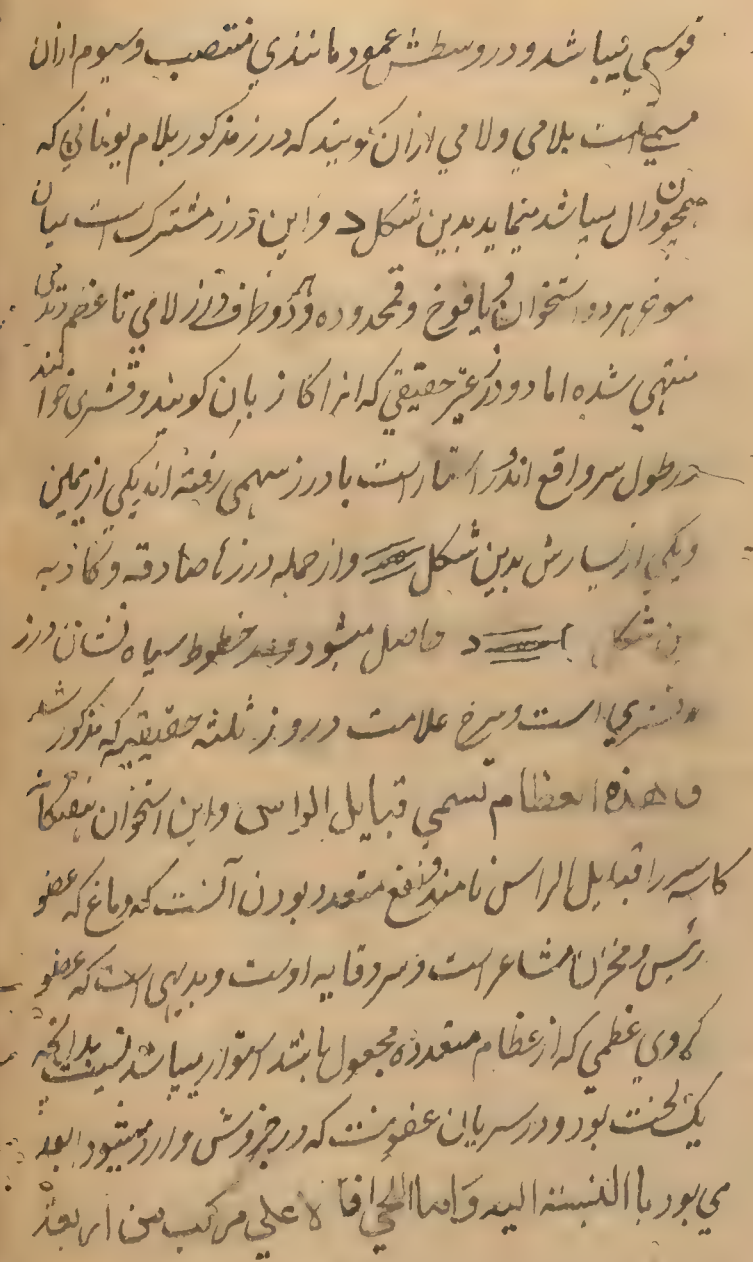 قوسي ميباشد و در وسطش عمود مانندي منتصب و سيوم ازان
مسمي است بلامي و لامي ازان گويند كه درز مذكور بلام يوناني كه
همچون دال ميباشد مينمايد بدين شكل د و اين درز مشترك است ميان
موخر هر دو استخوان يافوخ و قمحدوده و هر دو طرف درز لامي تا عظم وتدي
منتهي شده اما دو درز غير حقيقي كه انرا كاذبان گويند و قشري خوانند
در طول سر واقع اند و راستا راست با درز سهمي رفته اند يكي از يمين
و يكي از يسارش بدين شكل و از جمله درزها صادقه و كاذبه
بدين شكل حاصل ميشود خطوط سياه نشان درز
قشري است و سرخ علامت دروز ثلثه حقيقيه كه مذكور شد
و هذه العظام تسمي قبايل الراس و اين استخوان هفتگانه
كاسه سر را قبايل الراس نامند و نفع متعدد بودن آنست كه دماغ كه عضو
رئيس و مخزن مشاعر است و سر وقايه اوست و بديهي است كه عضو
كروي عظمي كه از عظام متعدده مجعول باشد استوار ميباشد نسبت بدانچه
يك لخت بود و در سريان عفونت كه در جزوش وارد ميشود ابعد
مي بود با النسبته اليه و اما اللحي الاعلي مركب من اربعة